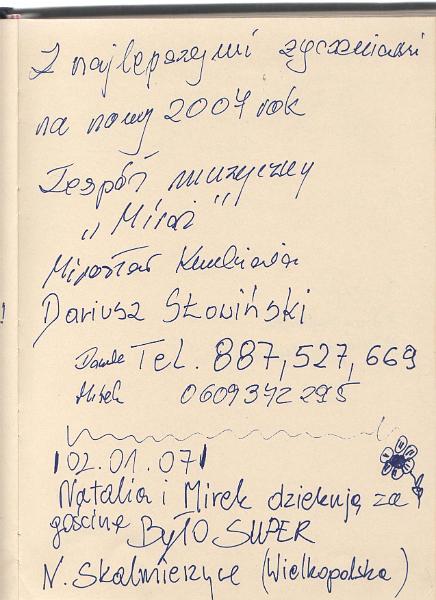 Z najlepszymi życzeniami
na nowy 2007 rok
Zespół muzyczny
„Miraż”
Mirosław
Dariusz Słowiński
Tel. 887,527,669
Mirek 0609372295
02.01.07
Natalia i Mirek dziękują za
gościnę Było SUPER
N. Skalmierzyce (Wielkopolska)